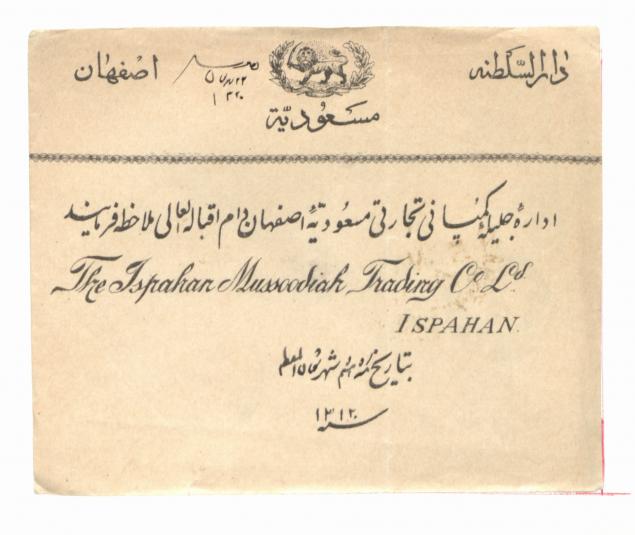 دارالسلطنه اصفهان
مسعودیّة
۱۳۲۰
ادارهٔ جلیلهٔ کمپانی تجارتی مسعودیّهٔ اصفهان دام اقباله العالی ملاحظه فرمایند
The Ispahan Mussoodiah Trading Co. Ld.
ISPAHAN.
بتاریخ شهر المعظم
سنه